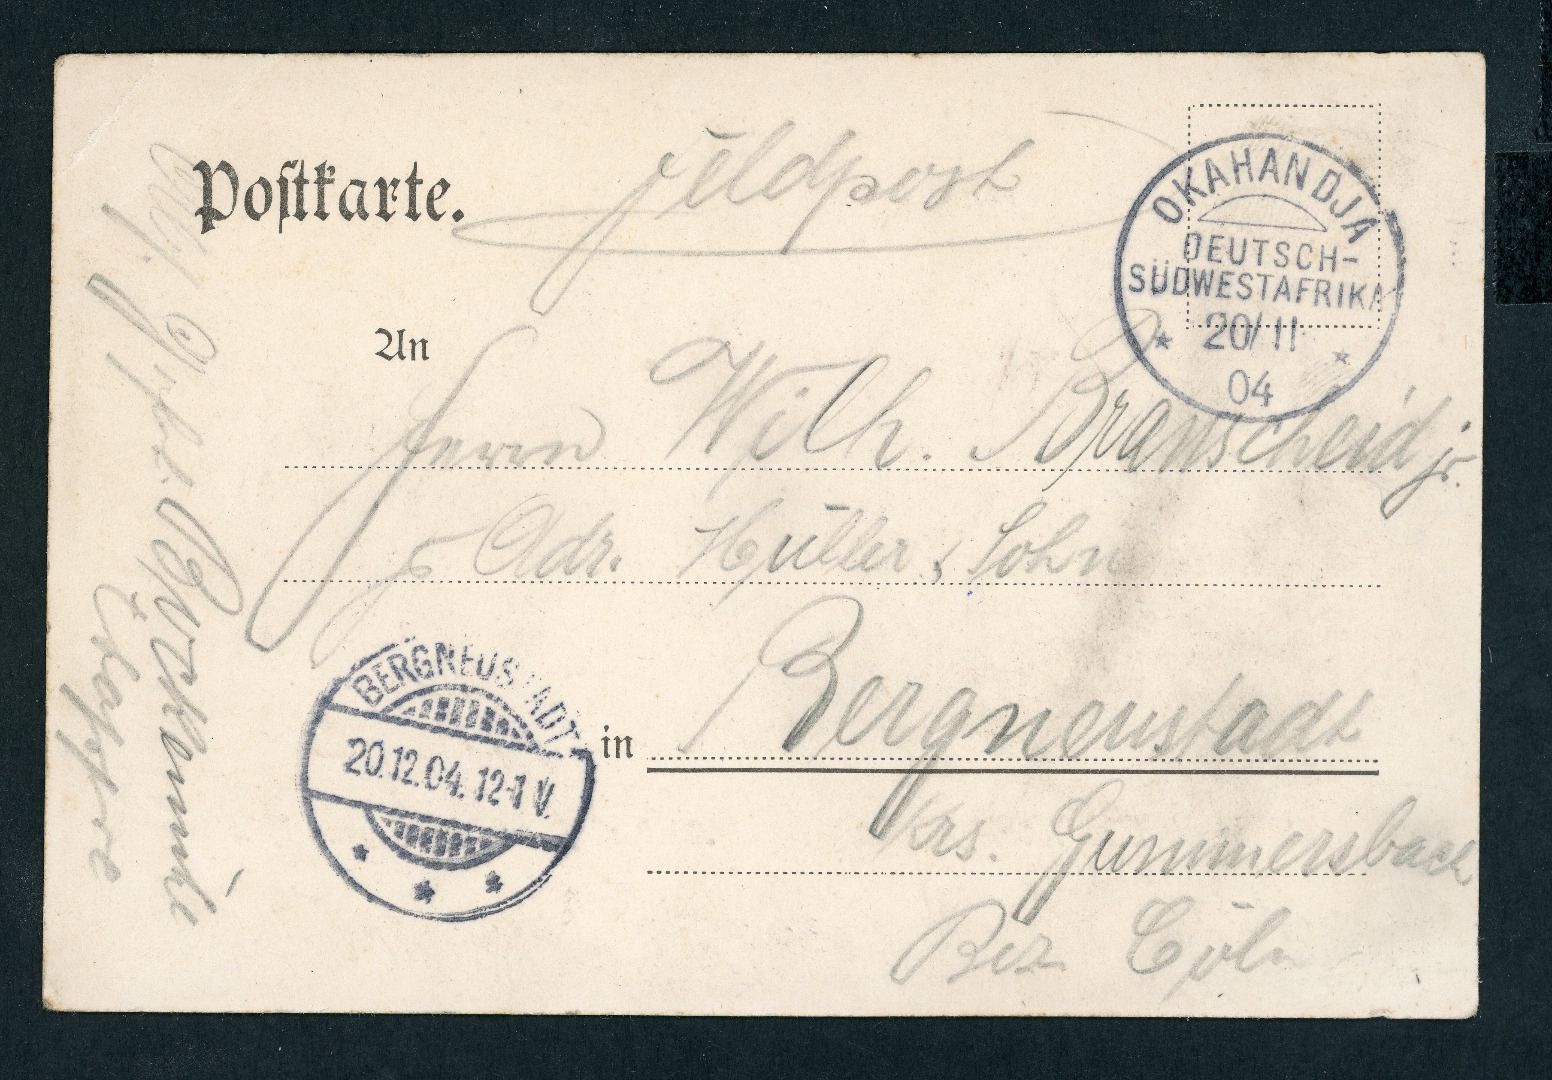 Postkarte.
Feldpost
OKAHANDJA
DEUTSCH-
SÜDWESTAFRIKA
20/11
04
An
Herrn Wilh. Branscheid jr.
Adr. Hüller & Sohn
BERGNEUSTADT
20.12.04. 12-1 V.
in Bergneustadt
Krs. Gummersbach
Bez. Cöln